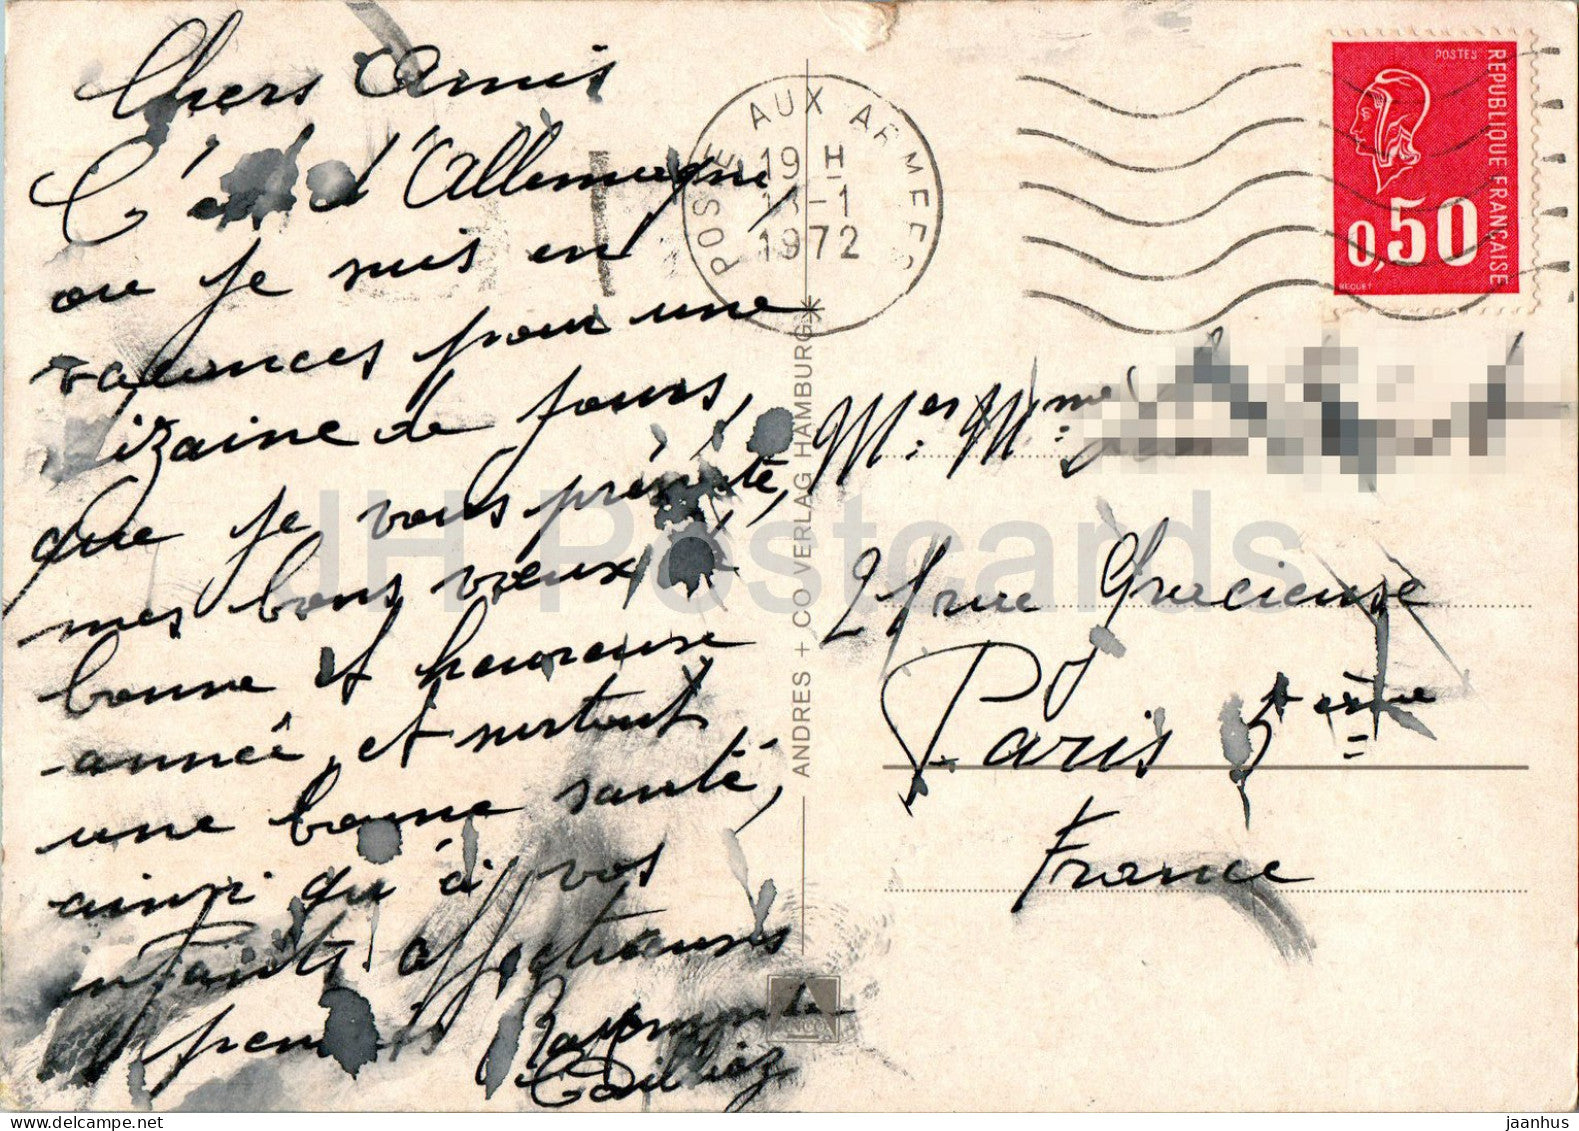 Chers Amis
C'est d'Allemagne
ou je suis en
vacances pour une
dizaine de jours,
que je vous présente,
mes bons vœux
bonne et heureuse
année, et surtout
une bonne santé,
ainsi qu'à vos
enfants affectueuses
pensées Raymonde
POSTE AUX ARMEES
19 H
-1
1972
*
POSTES
REPUBLIQUE FRANÇAISE
0,50
BEQUET
ANDRES + CO VERLAG HAMBURG
Mer Mme
21 rue Gracieuse
Paris 5ème
France
ANCO
IH Postcards
delcampe.net
jaanhus